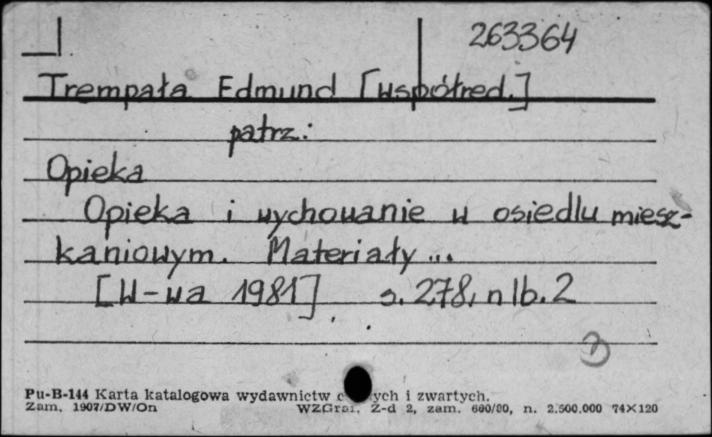 263364
Trempała Edmund [współred.]
patrz:
Opieka
Opieka i wychowanie w osiedlu miesz-
kaniowym. Materiały ...
[W-wa 1981] s. 278, nlb. 2
3
Pu-B-144 Karta katalogowa wydawnictw ych i zwartych.
Zam. 1907/DW/On WZGraf. Z-d 2, zam. 600/80, n. 2.500.000 74×120